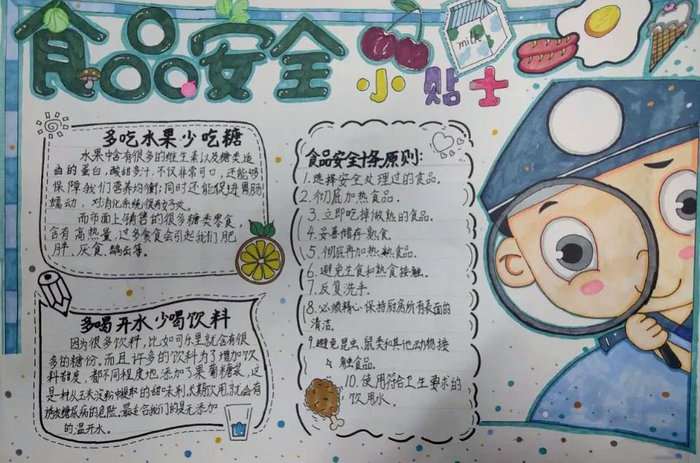 食品安全
小贴士
milk
多吃水果少吃糖
水果中含有很多的维生素以及糖类适
的蛋白,酸甜多汁,不仅非常可口,还能够
保障我们营养均衡;同时还能促进胃肠
蠕动,对消化系统很有好处。
而市面上销售的很多糖类零食,
含有高热量,过多食会引起我们肥
胖、厌食、龋齿等。
多喝开水少喝饮料
因为很多饮料,比如可乐里就含有很
多的糖份。而且许多的饮料为了增加饮
料甜度,都不同程度地添加了果葡糖浆,这
是一种从玉米淀粉中提取的甜味剂,长期饮用就会有
诱发糖尿病的危险,最适合我们的是无添加
的温开水。
食品安全十条原则:
1.选择安全处理过的食品。
2.彻底加热食品。
3.立即吃掉做熟的食品。
4.妥善储存熟食。
5.彻底再加热熟食品。
6.避免生食和熟食接触。
7.反复洗手。
8.必须精心保持厨房所有表面的
清洁。
9.避免昆虫、鼠类和其他动物接
触食品。
10.使用符合卫生要求的
饮用水。